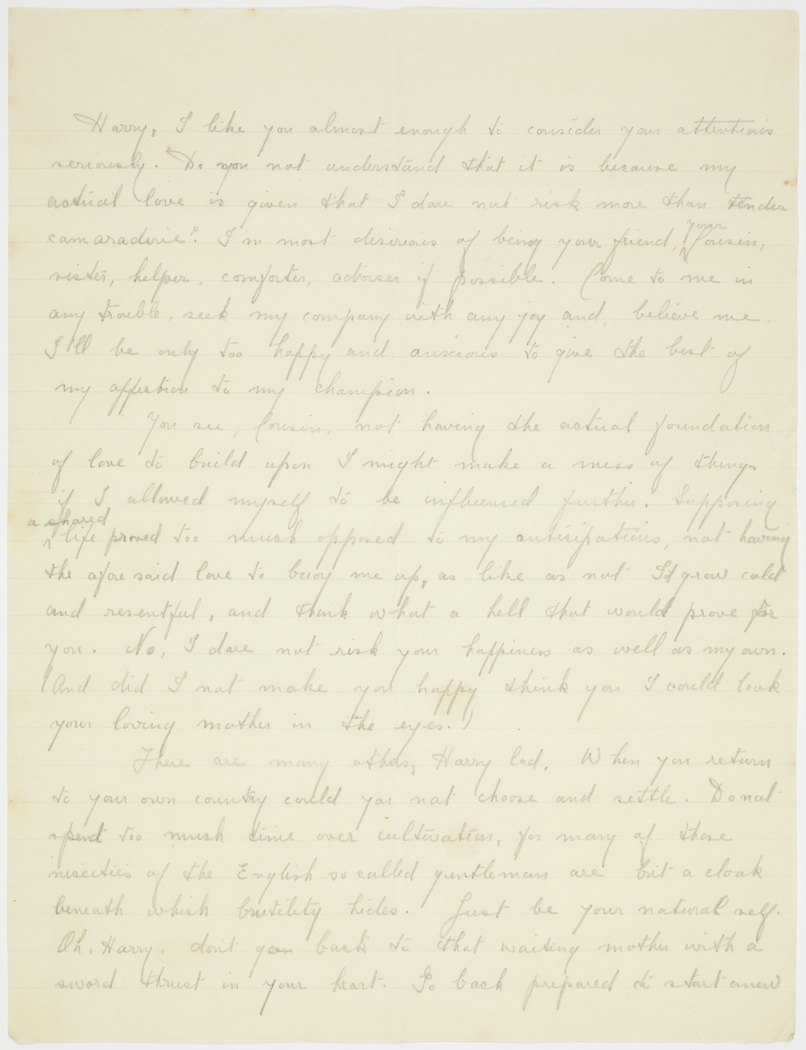 Harry, I like you almost enough to consider your attentions
seriously. Do you not understand that it is because my
actual love is given that I dare not risk more than tender
camaraderie? I'm most desireous of being your friend, your Cousin,
sister, helper, comforter, adviser if possible. Come to me in
any trouble, seek my company with any joy and, believe me,
I'll be only too happy and anxious to give the best of
my affection to my champion.
You see, Cousin, not having the actual foundation
of love to build upon I might make a mess of things
if I allowed myself to be influenced further. Supposing
a shared
life proved too much opposed to my anticipations, not having
the afore said love to buoy me up, as like as not I'd grow cold
and resentful, and think what a hell that would prove for
you. No, I dare not risk your happiness as well as my own.
(And did I not make you happy think you I could look
your loving mother in the eyes.)
There are many others, Harry lad. When you return
to your own country could you not choose and settle. Do not
spend too much time over cultivation, for many of those
niceties of the English so called gentlemans are but a cloak
beneath which hides. Just be your natural self.
Oh, Harry, don't go back to that waiting mother with a
sword thrust in your heart. Go back prepared to start anew